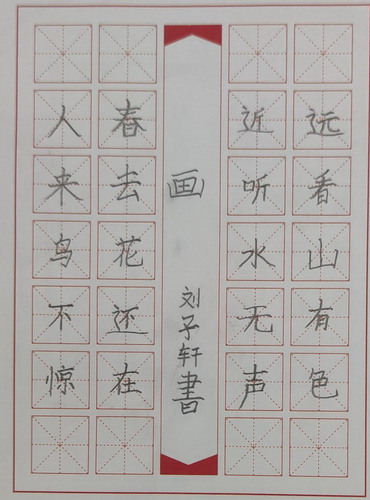 远看山有色
近听水无声
画
刘子轩書
春去花还在
人来鸟不惊